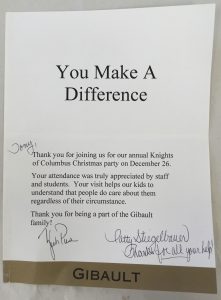 You Make A
Difference
Tony,
Thank you for joining us for our annual Knights
of Columbus Christmas party on December 26.
Your attendance was truly appreciated by staff
and students. Your visit helps our kids to
understand that people do care about them
regardless of their circumstance.
Thank you for being a part of the Gibault
family!
Patty Stiegelbauer
Thanks for all your help!
GIBAULT